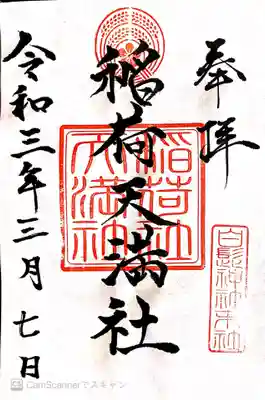 奉拝
稲荷天満社
令和三年三月七日
稲荷社
天満神
白髭神社
CamScannerでスキャン